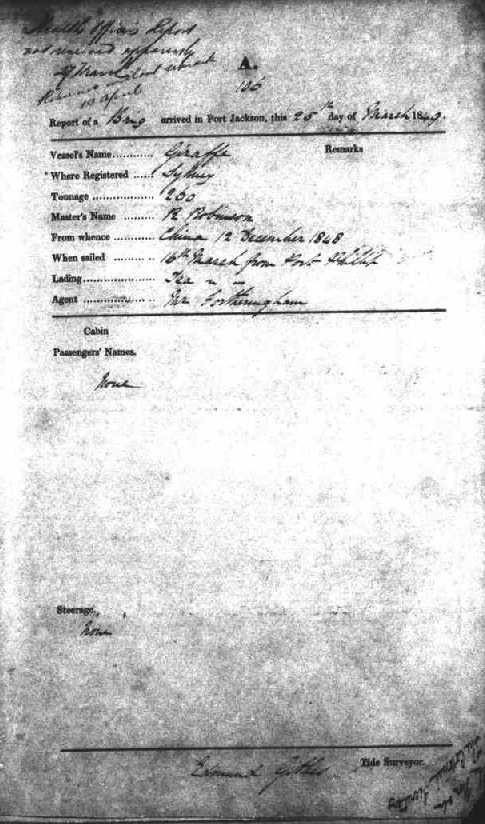 Health Officers Report
not received apparently
A.
136
Report of a Brig arrived in Port Jackson, this 25th day of March 1849.
Vessel's Name............ Giraffe Remarks
Where Registered ...... Sydney
Tonnage .................. 260
Master's Name ......... R. Robinson
From whence ............ China 12 December 1848
When sailed ............ 16th March from Port Phillip
Lading..................... Tea
Agent ..................... Mr Fortheringham
Cabin
Passengers' Names.
None
Steerage,
None
Edmund Tide Surveyor.